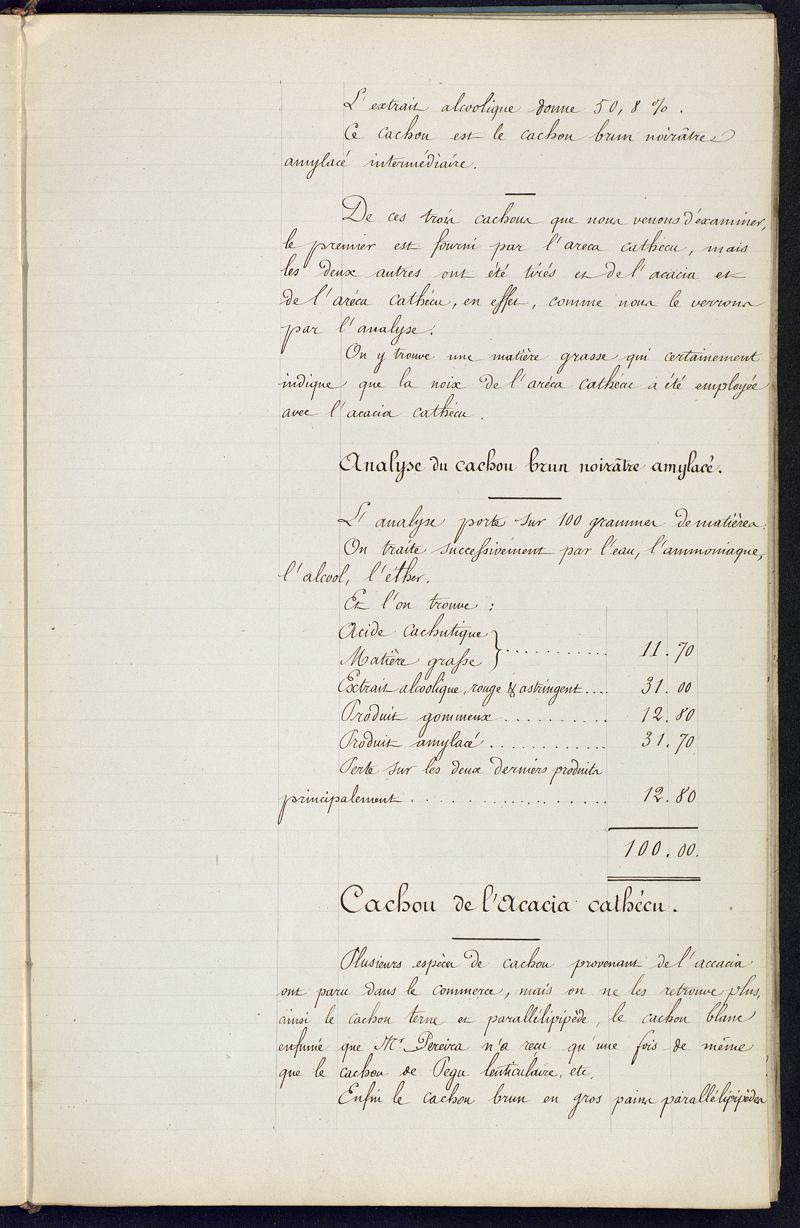 L'extrait alcoolique donne 50,8 %.
Ce cachou est le cachou brun noirâtre
amylacé intermédiaire.
De ces trois cachous que nous venons d'examiner,
le premier est fourni par l'areca cathécu, mais
les deux autres ont été tirés et de l'acacia et
de l'aréca cathécu, en effet, comme nous le verrons
par l'analyse.
On y trouve une matière grasse qui certainement
indique que la noix de l'aréca cathécu a été employée
avec l'acacia cathécu.
Analyse du cachou brun noirâtre amylacé.
L'analyse porte sur 100 grammes de matières.
On traite successivement par l'eau, l'ammoniaque,
l'alcool, l'éther.
Et l'on trouve :
Acide cachutique
Matière grasse } ........... 11.70
Extrait alcoolique, rouge & astringent.... 31.00
Produit gommeux .......... 12.80
Produit amylacé ........... 31.70
Perte sur les deux derniers produits
principalement .................. 12.80
100.00.
Cachou de l'Acacia cathécu.
Plusieurs espèces de cachou provenant de l'accacia
ont paru dans le commerce, mais on ne les retrouve plus,
ainsi le cachou terne et parallélipipède, le cachou blanc
enfumé que Mr Pereira n'a reçu qu'une fois de même
que le cachou de Pegu lenticulaire, etc.
Enfin le cachou brun en gros pains parallélipipèdes